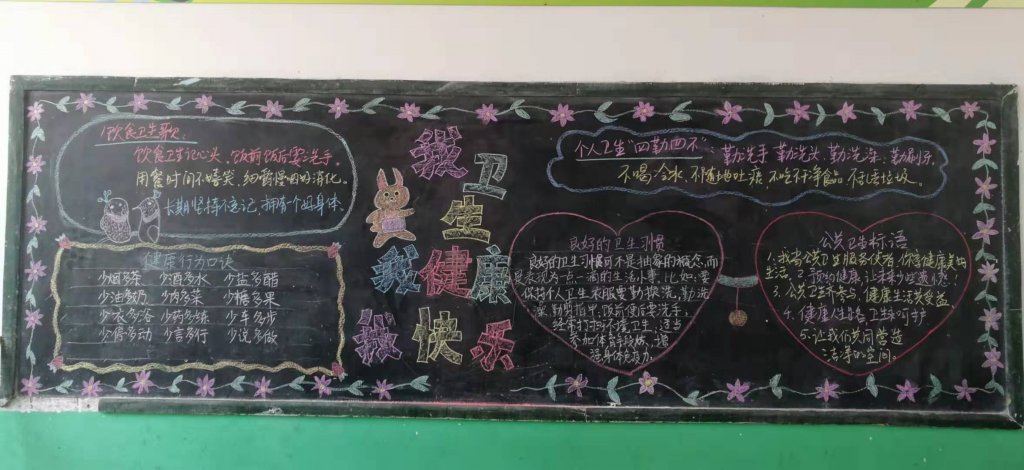 饮食卫生歌:
饮食卫生记心头,饭前饭后要洗手。
用餐时间不嬉笑,细嚼慢咽好消化。
长期坚持不忘记,拥有一个好身体。
健康行为口诀
少烟多茶 少酒多水 少盐多醋
少油多奶 少肉多菜 少糖多果
少衣多浴 少药多练 少车多步
少懒多动 少言多行 少说多做
我卫生
我健康
我快乐
个人卫生"四勤四不":勤洗手 勤洗头、勤洗澡、勤剪
不喝冷水、不随地吐痰、不吃不净食品、不乱丢垃圾。
良好的卫生习惯
良好的卫生习惯可不是抽象的概念,而
是表现为一点一滴的生活小事。比如:要
保持个人卫生衣服要勤换洗,勤洗
澡,勤剪指甲,饭前便后要洗手,
经常打扫环境卫生,适当
参加体育锻炼,增
强身体免疫力。
公共卫生标语
1.我当公共卫生服务使者,你享健康美的
生活。2.预约健康,让未来少些遗憾。
3.公共卫齐参与,健康生活共受益
4.健康人生路 卫生来呵护
5.让我们共同营造
洁净的空间。